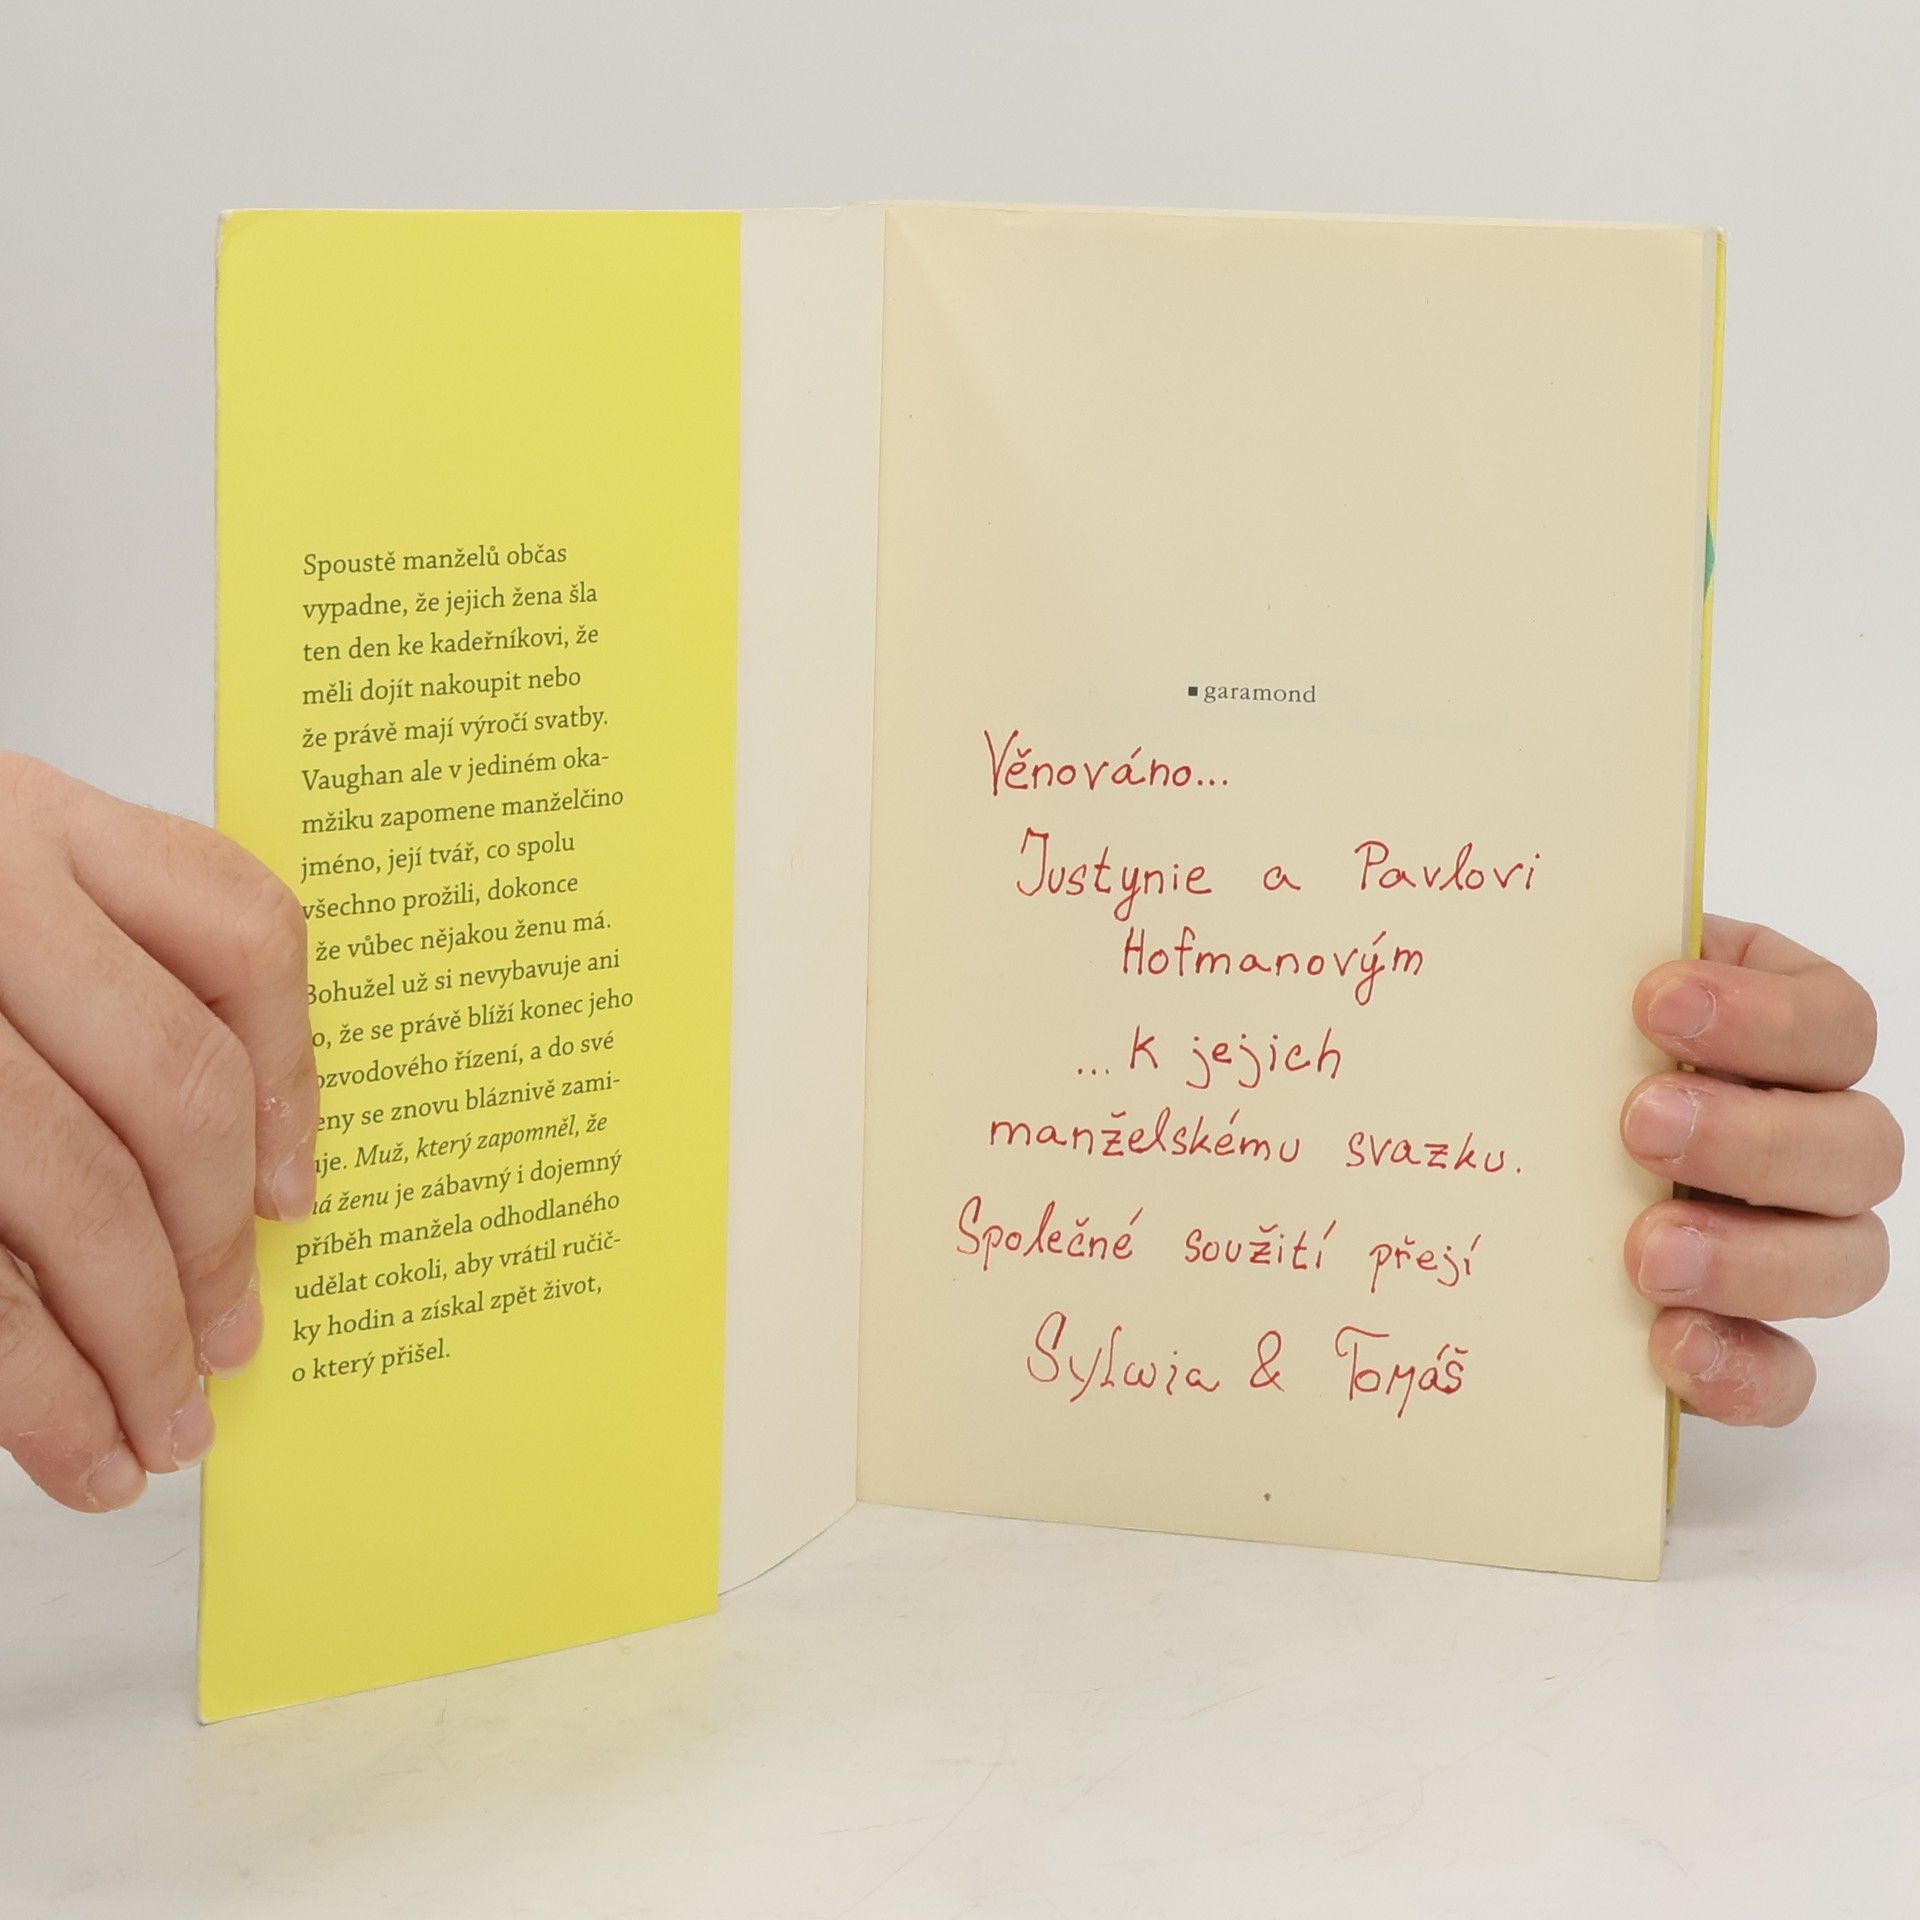 Spoustě manželů občas
vypadne, že jejich žena šla
ten den ke kadeřníkovi, že
měli dojít nakoupit nebo
že právě mají výročí svatby.
Vaughan ale v jediném oka-
mžiku zapomene manželčino
jméno, její tvář, co spolu
všechno prožili, dokonce
že vůbec nějakou ženu má.
Bohužel už si nevybavuje ani
o, že se právě blíží konec jeho
ozvodového řízení, a do své
eny se znovu bláznivě zami-
uje. Muž, který zapomněl, že
má ženu je zábavný i dojemný
příběh manžela odhodlaného
udělat cokoli, aby vrátil ručič-
ky hodin a získal zpět život,
o který přišel.
garamond
Věnováno...
Justynie a Pavlovi
Hofmanovým
...k jejich
manželskému svazku.
Společné soužití přejí
Sylwia & Tomáš